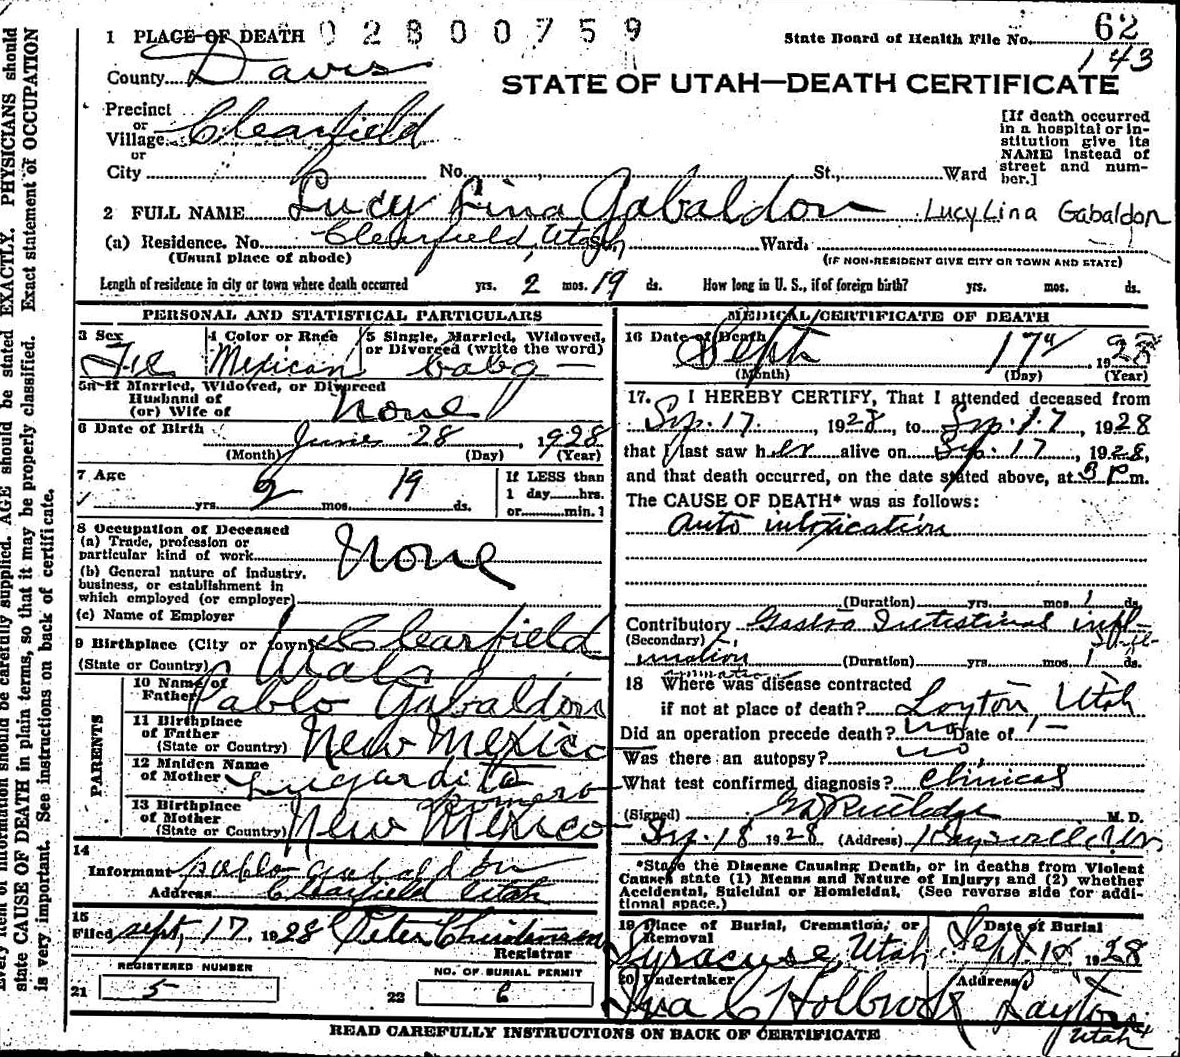 1 PLACE OF DEATH 02800759
State Board of Health File No. 62
143
County Davis
STATE OF UTAH—DEATH CERTIFICATE
Precinct
or
Village Clearfield
or
City No. St., Ward
[If death occurred
in a hospital or in-
stitution give its
NAME instead of
street and num-
ber.]
2 FULL NAME Lucy Lina Gabaldon Lucy Lina Gabaldon
(a) Residence. No. Clearfield, Utah St., Ward.
(Usual place of abode) (IF NON-RESIDENT GIVE CITY OR TOWN AND STATE)
Length of residence in city or town where death occurred yrs. 2 mos. 19 ds. How long in U. S., if of foreign birth? yrs. mos. ds.
PERSONAL AND STATISTICAL PARTICULARS
3 Sex 4 Color or Race 5 Single, Married, Widowed,
or Divorced (write the word)
Fe Mexican baby
5a If Married, Widowed, or Divorced
Husband of
(or) Wife of None
6 Date of Birth June 28, 1928
(Month) (Day) (Year)
7 Age
2 19
yrs. mos. ds.
If LESS than
1 day hrs.
or min.?
8 Occupation of Deceased
(a) Trade, profession or
particular kind of work None
(b) General nature of industry,
business, or establishment in
which employed (or employer)
(c) Name of Employer
9 Birthplace (City or town) Clearfield
(State or Country) Utah
PARENTS
10 Name of
Father Pablo Gabaldon
11 Birthplace
of Father
(State or Country) New Mexico
12 Maiden Name
of Mother Lugardita
Romero
13 Birthplace
of Mother
(State or Country) New Mexico
14
Informant Pablo Gabaldon
Address Clearfield Utah
15
Filed Sept, 17 1928 Peter Christensen
Registrar
REGISTERED NUMBER NO. OF BURIAL PERMIT
21 5 22 6
MEDICAL CERTIFICATE OF DEATH
16 Date of Death
Sept 17 1928
(Month) (Day) (Year)
17. I HEREBY CERTIFY, That I attended deceased from
Sep. 17, 1928, to Sep. 17, 1928
that I last saw her alive on Sep. 17, 1928,
and that death occurred, on the date stated above, at 3 P m.
The CAUSE OF DEATH* was as follows:
Auto intoxication
(Duration) yrs. mos. 1 ds.
Contributory Gastro Intestinal infl-
(Secondary)
mation (Duration) yrs. mos. 1 ds.
18 Where was disease contracted
if not at place of death? Layton, Utah
Did an operation precede death? no Date of —
Was there an autopsy? no
What test confirmed diagnosis? Clinical
(Signed) G D Rutledge M. D.
Sep. 18 1928 (Address) Kaysville, Ut
*State the Disease Causing Death, or in deaths from Violent
Causes state (1) Means and Nature of Injury; and (2) whether
Accidental, Suicidal or Homicidal. (See reverse side for addi-
tional space.)
19 Place of Burial, Cremation, or
Removal
Date of Burial
Syracuse, Utah Sept 18 1928
20 Undertaker Address
Ira C Holbrook Layton
Utah
READ CAREFULLY INSTRUCTIONS ON BACK OF CERTIFICATE
Every item of information should be carefully supplied. AGE should be stated EXACTLY. PHYSICIANS should
state CAUSE OF DEATH in plain terms, so that it may be properly classified. Exact statement of OCCUPATION
is very important. See instructions on back of certificate.